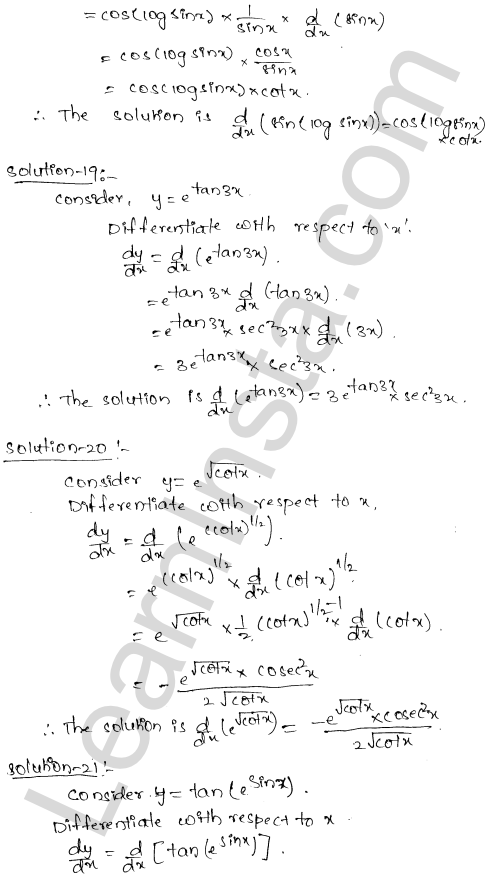 = cos(log sinx) × 1/sinx × d/dx (sinx)
= cos(log sinx) × cosx/sinx
= cos(log sinx) × cotx.
∴ The solution is d/dx (sin(log sinx)) = cos(log sinx) × cotx.
Solution-19:-
Consider, y = e^tan3x.
Differentiate with respect to 'x'.
dy/dx = d/dx (e^tan3x).
= e^tan3x × d/dx (tan3x).
= e^tan3x × sec²3x × d/dx (3x).
= 3e^tan3x × sec²3x.
∴ The solution is d/dx (e^tan3x) = 3e^tan3x × sec²3x.
Solution-20:-
Consider y = e^√cotx.
Differentiate with respect to x,
dy/dx = d/dx (e^(cotx)^1/2).
= e^(cotx)^1/2 × d/dx (cotx)^1/2.
= e^√cotx × 1/2 (cotx)^1/2-1 × d/dx (cotx).
= - e^√cotx × cosec²x / 2√cotx
∴ The solution is d/dx (e^√cotx) = -e^√cotx × cosec²x / 2√cotx.
Solution-21:-
Consider y = tan(e^sinx).
Differentiate with respect to x.
dy/dx = d/dx [tan(e^sinx)].
LearnInsta.com